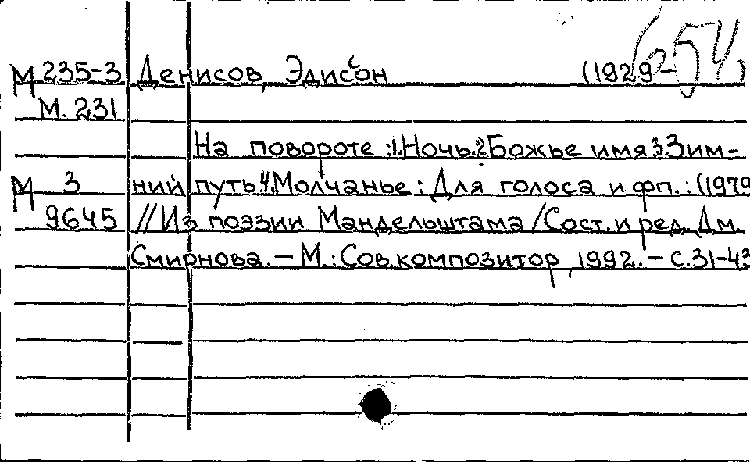 М 235-3 Денисов, Эдисон (1929-
М. 231
На повороте: 1.Ночь.2.Божье имя.3.Зим-
М 3 ний путь.4.Молчанье: Для голоса и фп.: (1979
9645 //Из поэзии Мандельштама/Сост. и ред. Дм.
Смирнова.-М.: Сов.композитор, 1992.-с.31-43